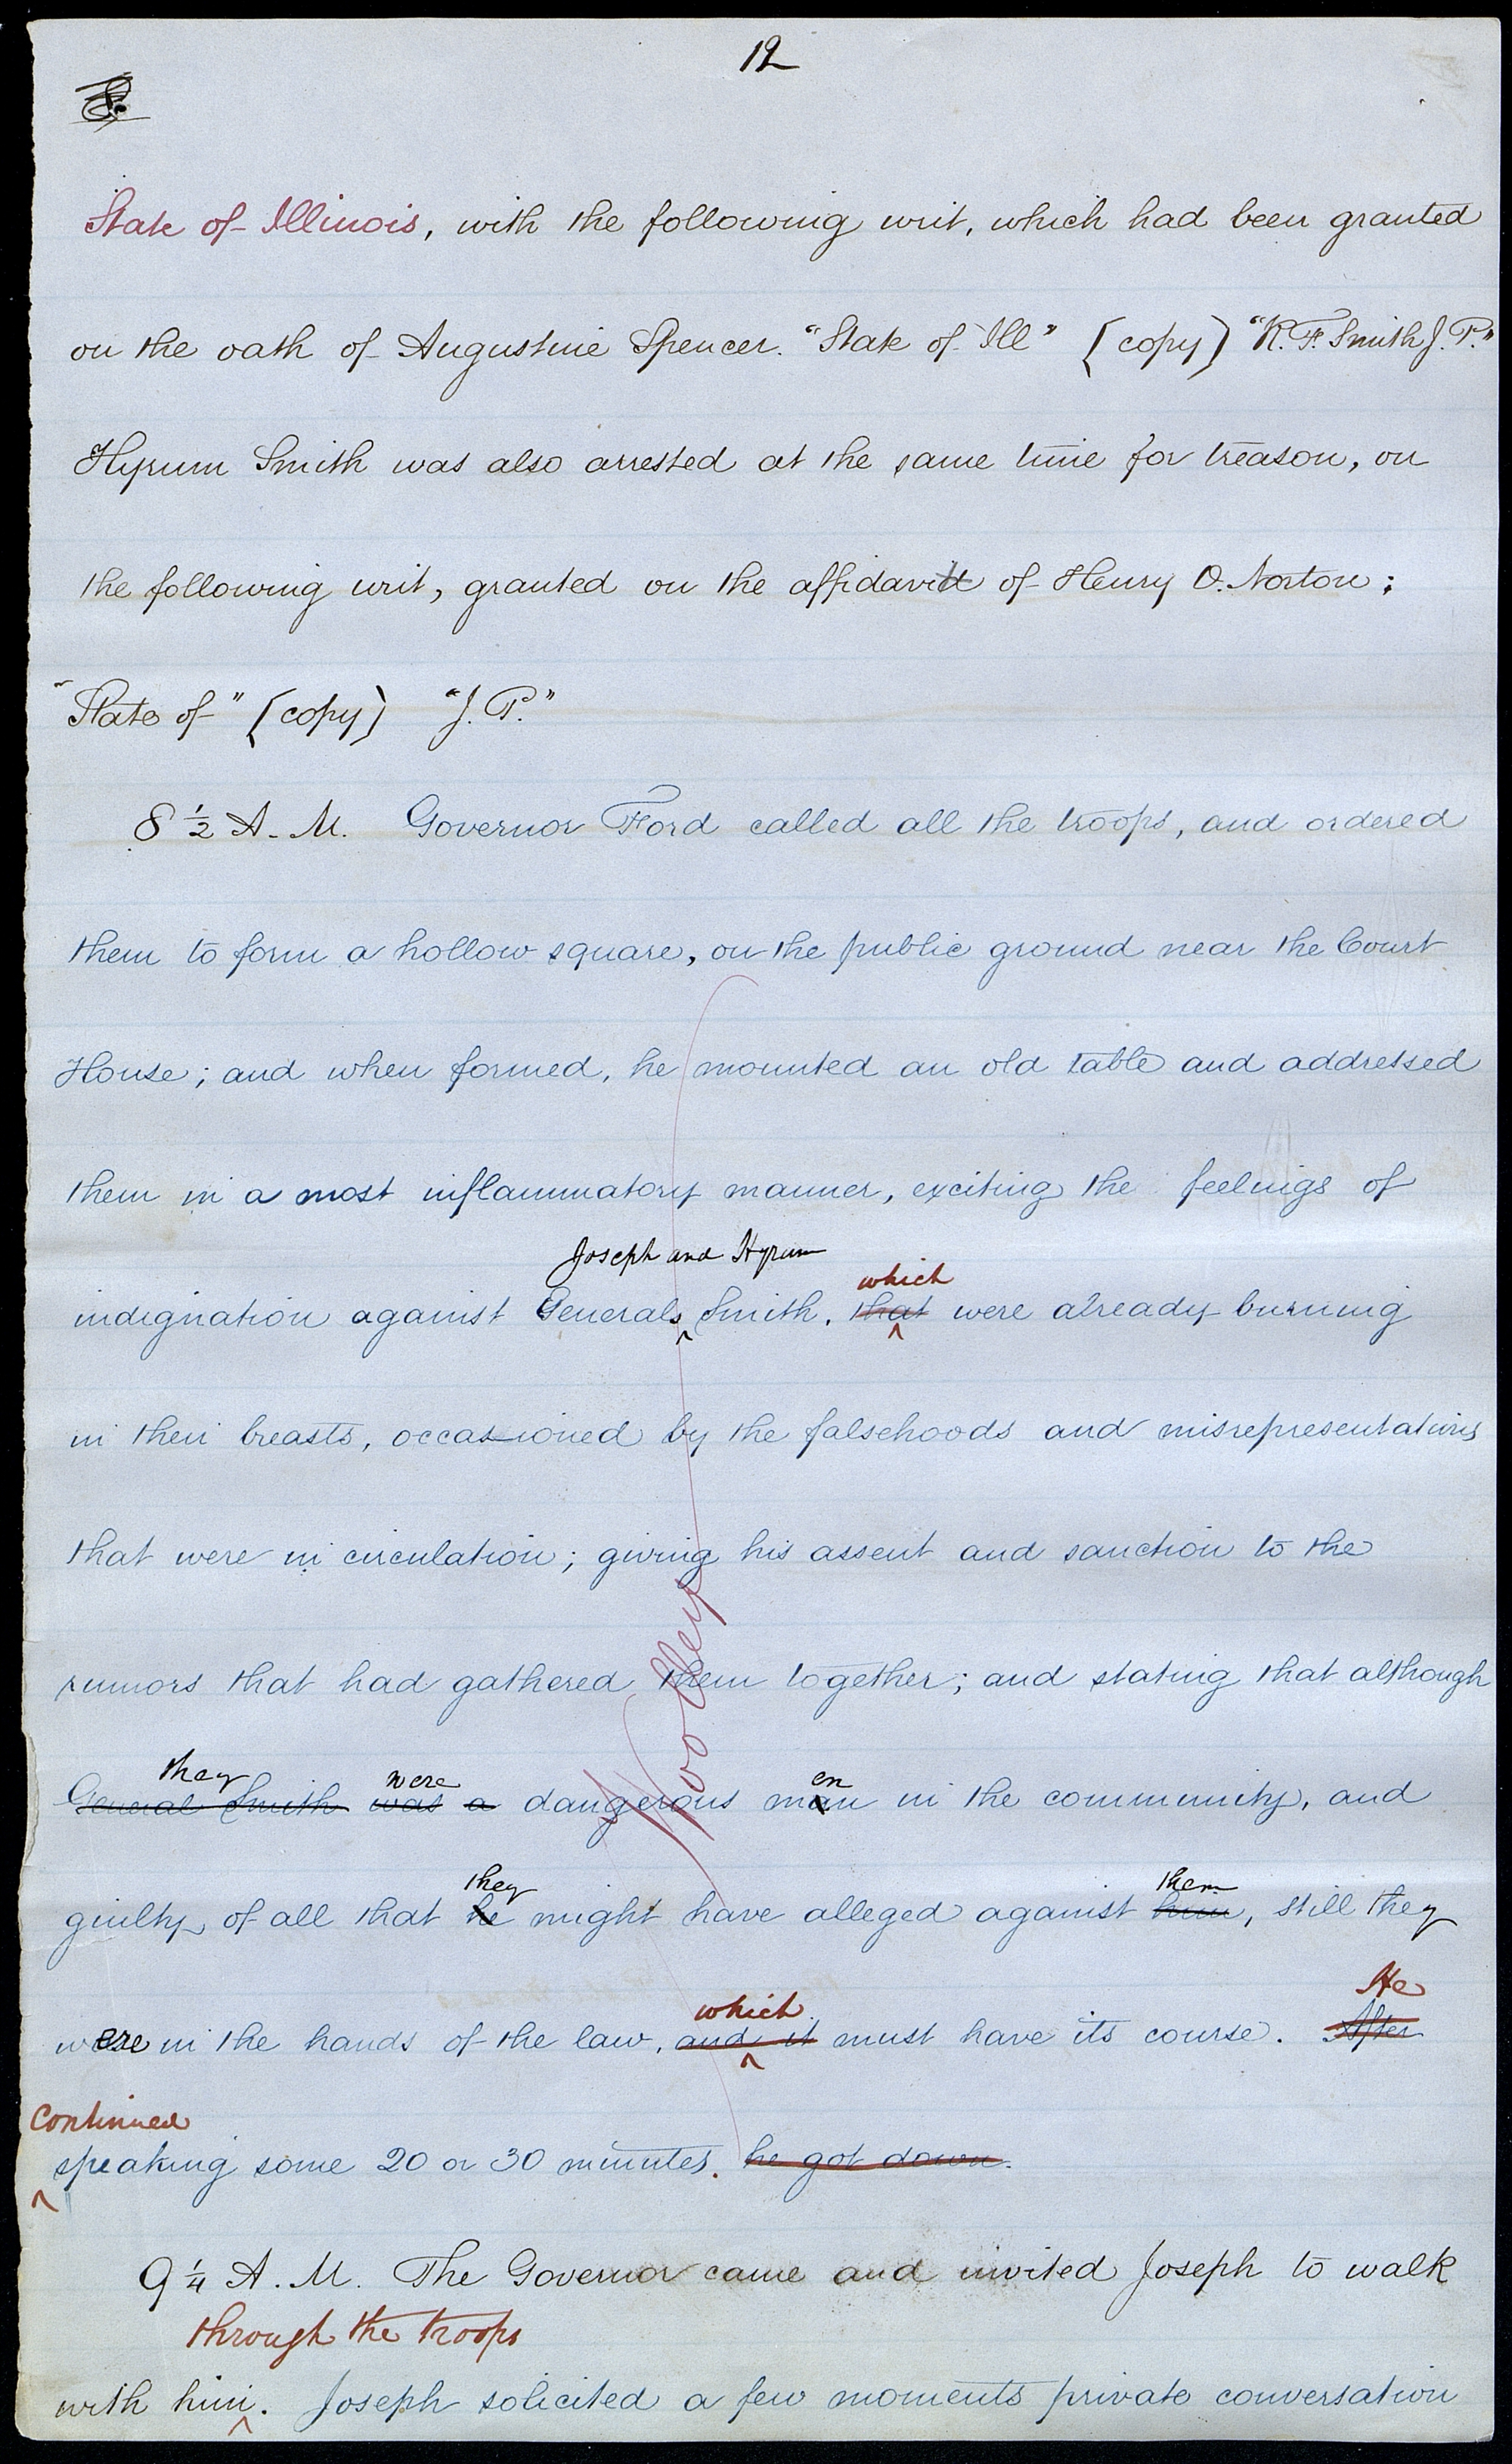 12
8.
State of Illinois, with the following writ, which had been granted
on the oath of Augustine Spencer. "State of Ill" [copy] "R. F. Smith J. P."
Hyrum Smith was also arrested at the same time for treason, on
the following writ, granted on the affidavit of Henry O. Norton;
"State of" [copy] "J. P."
8 1/2 A. M. Governor Ford called all the troops, and ordered
them to form a hollow square, on the public ground near the Court
House; and when formed, he mounted an old table and addressed
them in a most inflammatory manner, exciting the feelings of
Joseph and Hyrum
which
indignation against Generals Smith, that were already burning
in their breasts, occasioned by the falsehoods and misrepresentations
that were in circulation; giving his assent and sanction to the
rumors that had gathered them together; and stating that although
they were en
General Smith was a dangerous man in the community, and
they them
guilty of all that he might have alleged against him, still they
which He
were in the hands of the law, and it must have its course. After
continued
speaking some 20 or 30 minutes. he got down.
9 1/4 A. M. The Governor came and invited Joseph to walk
through the troops
with him. Joseph solicited a few moments private conversation
Woolley